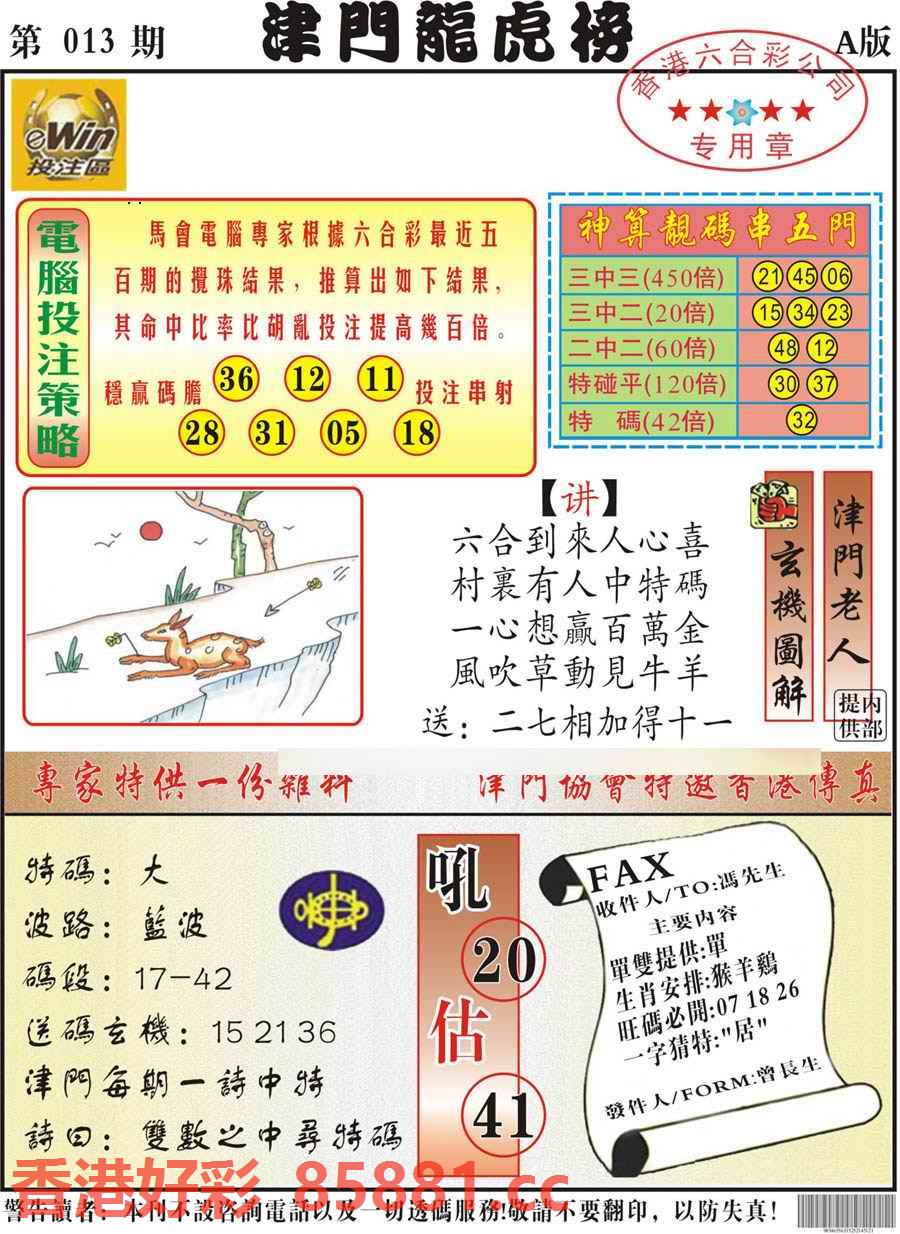 第 013 期
津門龍虎榜
A版
香港六合彩公司
专用章
eWin
投注區
電腦投注策略
馬會電腦專家根據六合彩最近五
百期的攪珠結果，推算出如下結果，
其命中比率比胡亂投注提高幾百倍。
穩贏碼膽 36 12 11 投注串射
28 31 05 18
神算靚碼串五門
三中三(450倍) 21 45 06
三中二(20倍) 15 34 23
二中二(60倍) 48 12
特碰平(120倍) 30 37
特 碼(42倍) 32
【讲】
六合到來人心喜
村裏有人中特碼
一心想贏百萬金
風吹草動見牛羊
送：二七相加得十一
玄機圖解
津門老人
内部提供
專家特供一份雜料
津門協會特邀香港傳真
特碼：大
波路：藍波
碼段：17-42
送碼玄機：15 21 36
津門每期一詩中特
詩曰：雙數之中尋特碼
吼
20
估
41
FAX
收件人/TO:馮先生
主要内容
單雙提供:單
生肖安排:猴羊鷄
旺碼必開:07 18 26
一字猜特:"居"
發件人/FORM:曾長生
香港好彩 85881.cc
警告讀者：本刊不設咨詢電話以及一切透碼服務!敬請不要翻印，以防失真！